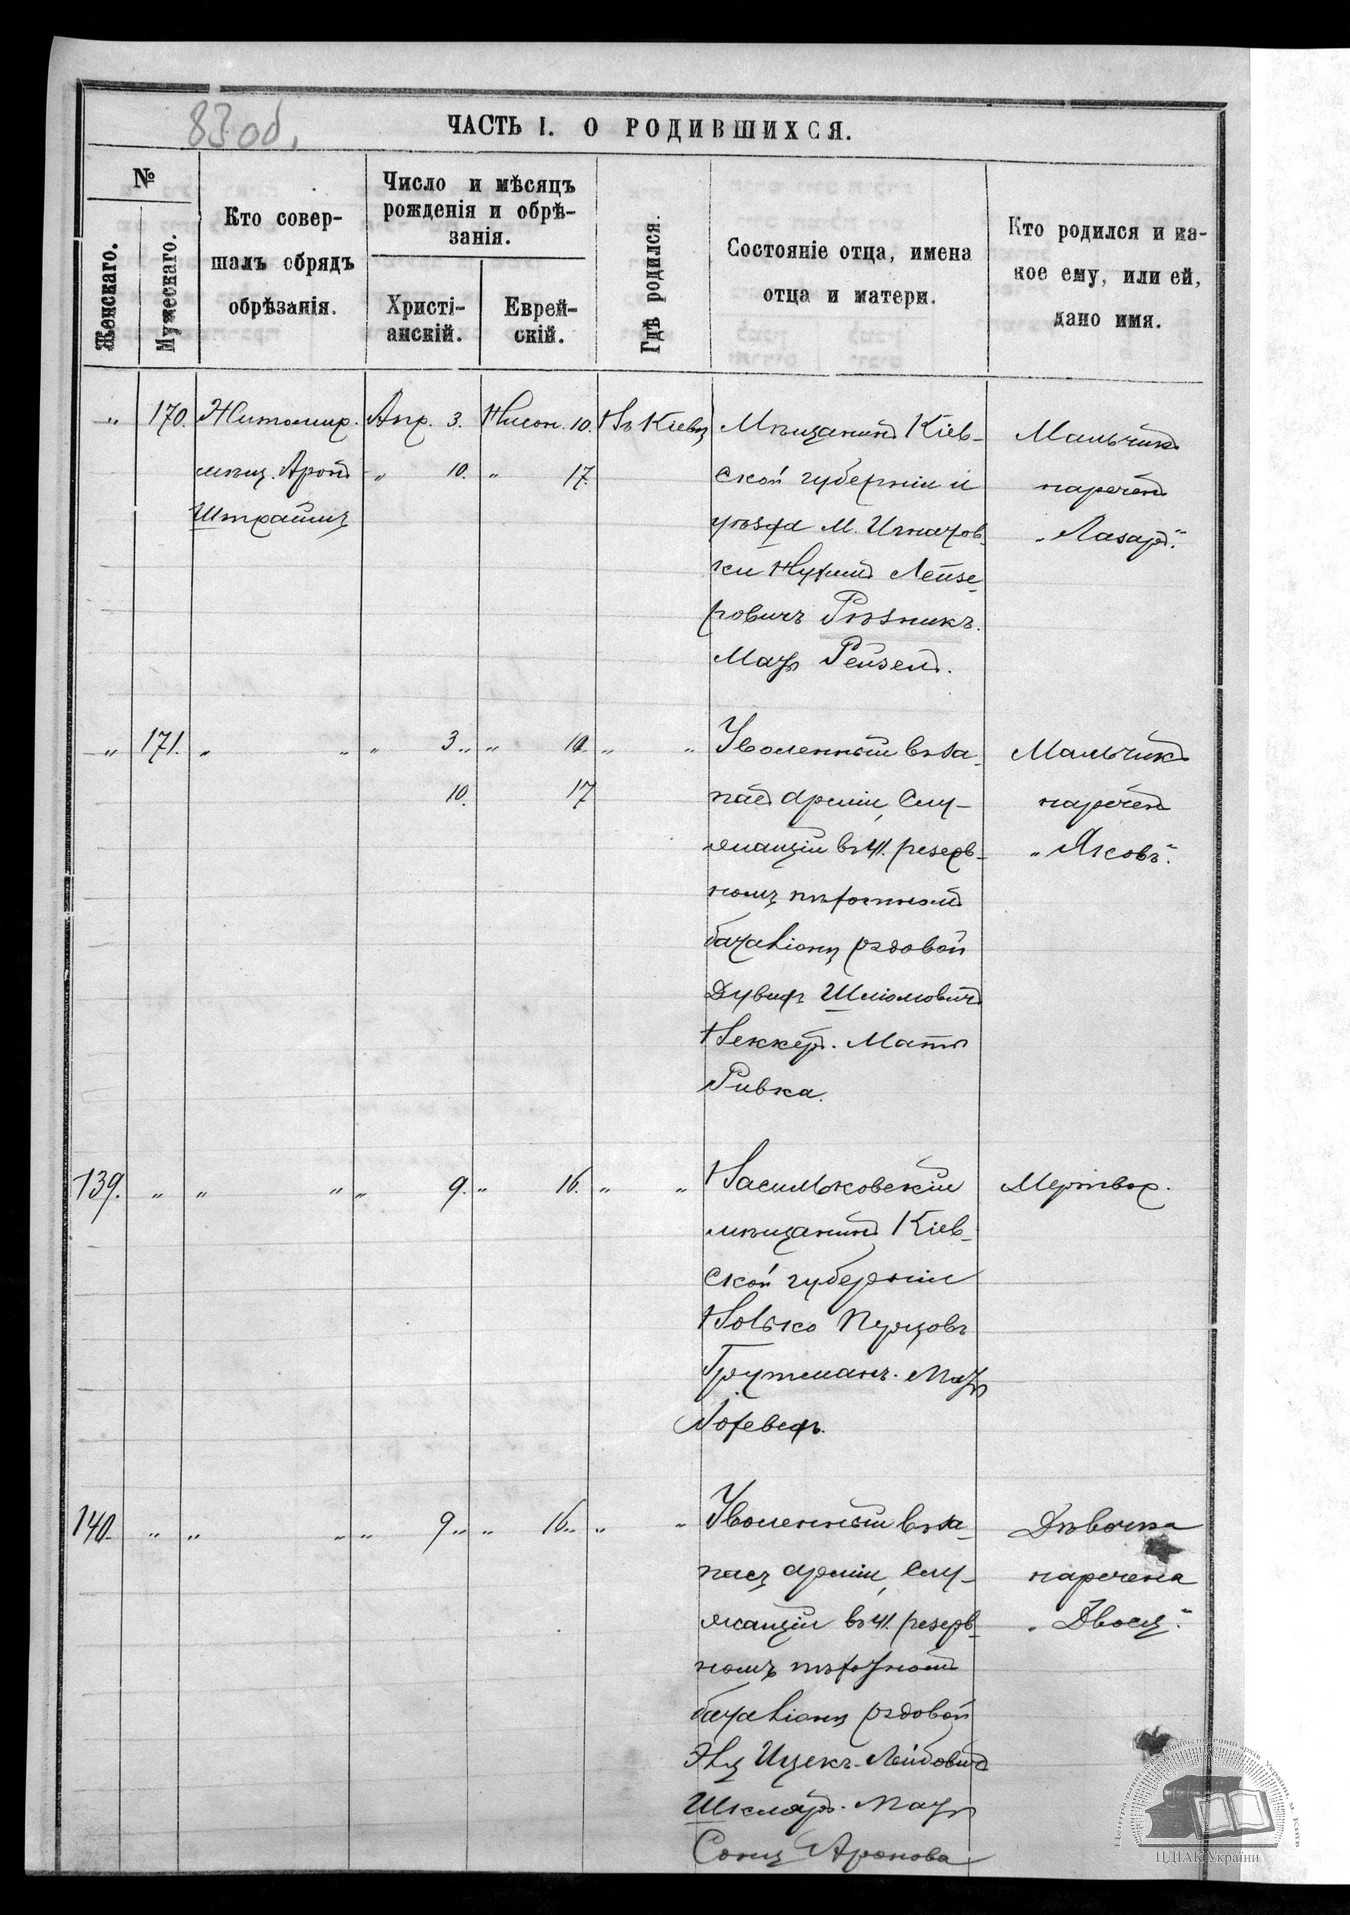 83 об.
ЧАСТЬ I. О РОДИВШИХСЯ.
№
Женскаго.
Мужескаго.
Кто совер-
шалъ обрядъ
обрѣзанія.
Число и мѣсяцъ
рожденія и обрѣ-
занія.
Христі-
анскій.
Еврей-
скій.
Гдѣ родился.
Состояніе отца, имена
отца и матери.
Кто родился и ка-
кое ему, или ей,
дано имя.
„ 170. Житомир. Апр. 3. Нисон. 10. Въ Кіевѣ
мѣщ. Арон „ 10. „ 17.
Штрайхъ
Мѣщанинъ Кіев-
ской губерніи и
уѣзда М. Игнатов-
ки Нухимъ Лейзе-
ровичъ Рѣзникъ.
Мать Рейзел.
Мальчикъ
нареченъ
„Лазарь“.
„ 171. „ „ „ 3 „ „ 10 „ „
10. 17
Уволенный въ за-
пасъ арміи, слу-
жащій въ 41. резерв-
номъ пѣхотномъ
баталіонѣ рядовой
Дувидъ Шліомовичъ
Веккеръ. Мать
Ривка.
Мальчикъ
нареченъ
„Яковъ“.
139. „ „ „ „ 9. „ 16. „ „
Васильковскій
мѣщанинъ Кіев-
ской губерніи
Волько
Трутманъ. Мать
Мертвор.
140. „ „ „ „ 9 „ „ 16 „ „ „
Уволенный въ за-
пасъ арміи, слу-
жащій въ 41. резерв-
номъ пѣхотномъ
баталіонѣ рядовой
Ицекъ-Лейбовичъ
Шкляръ. Мать
Сония Аронова
Дѣвочка
наречена
„Двося“.
ЦДІАК України